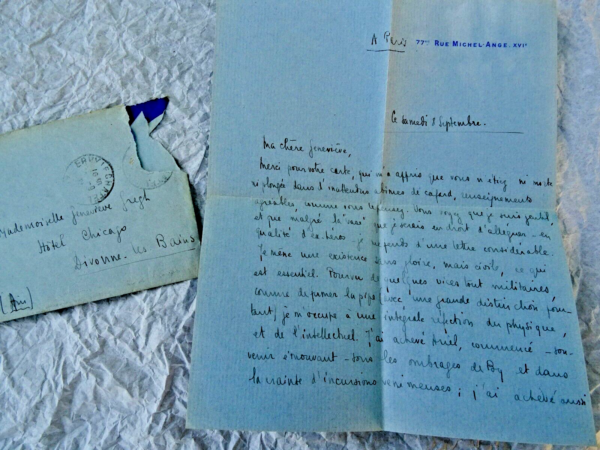 Mademoiselle Geneviève Gregh
Hôtel Chicago
Divonne-les-Bains
(Ain)
A Paris 77TER RUE MICHEL-ANGE. XVIE
Ce samedi 8 Septembre.
Ma chère Geneviève,
Merci pour votre carte, qui m'a appris que vous n'étiez ni morte
ni plongée dans l' abîmes de cafard, renseignements
Vous voyez que je suis gentil,
et que malgré le que je serais en droit d'alléguer - en
qualité d' - je réponds d'une lettre considérable.
Je mène une existence sans gloire, mais civile, ce qui
est essentiel. Pourvu de quelques vices tout militaires,
comme de fumer la pipe (avec une grande distinction pour
tant) je m'occupe à une intégrale réfection du physique,
et de l'intellectuel. J'ai achevé Ariel, commencé - sou-
venir s'mouvant - sous les ombrages de Bg et dans
la crainte d'incursions venimeuses ; j'ai achevé aussi